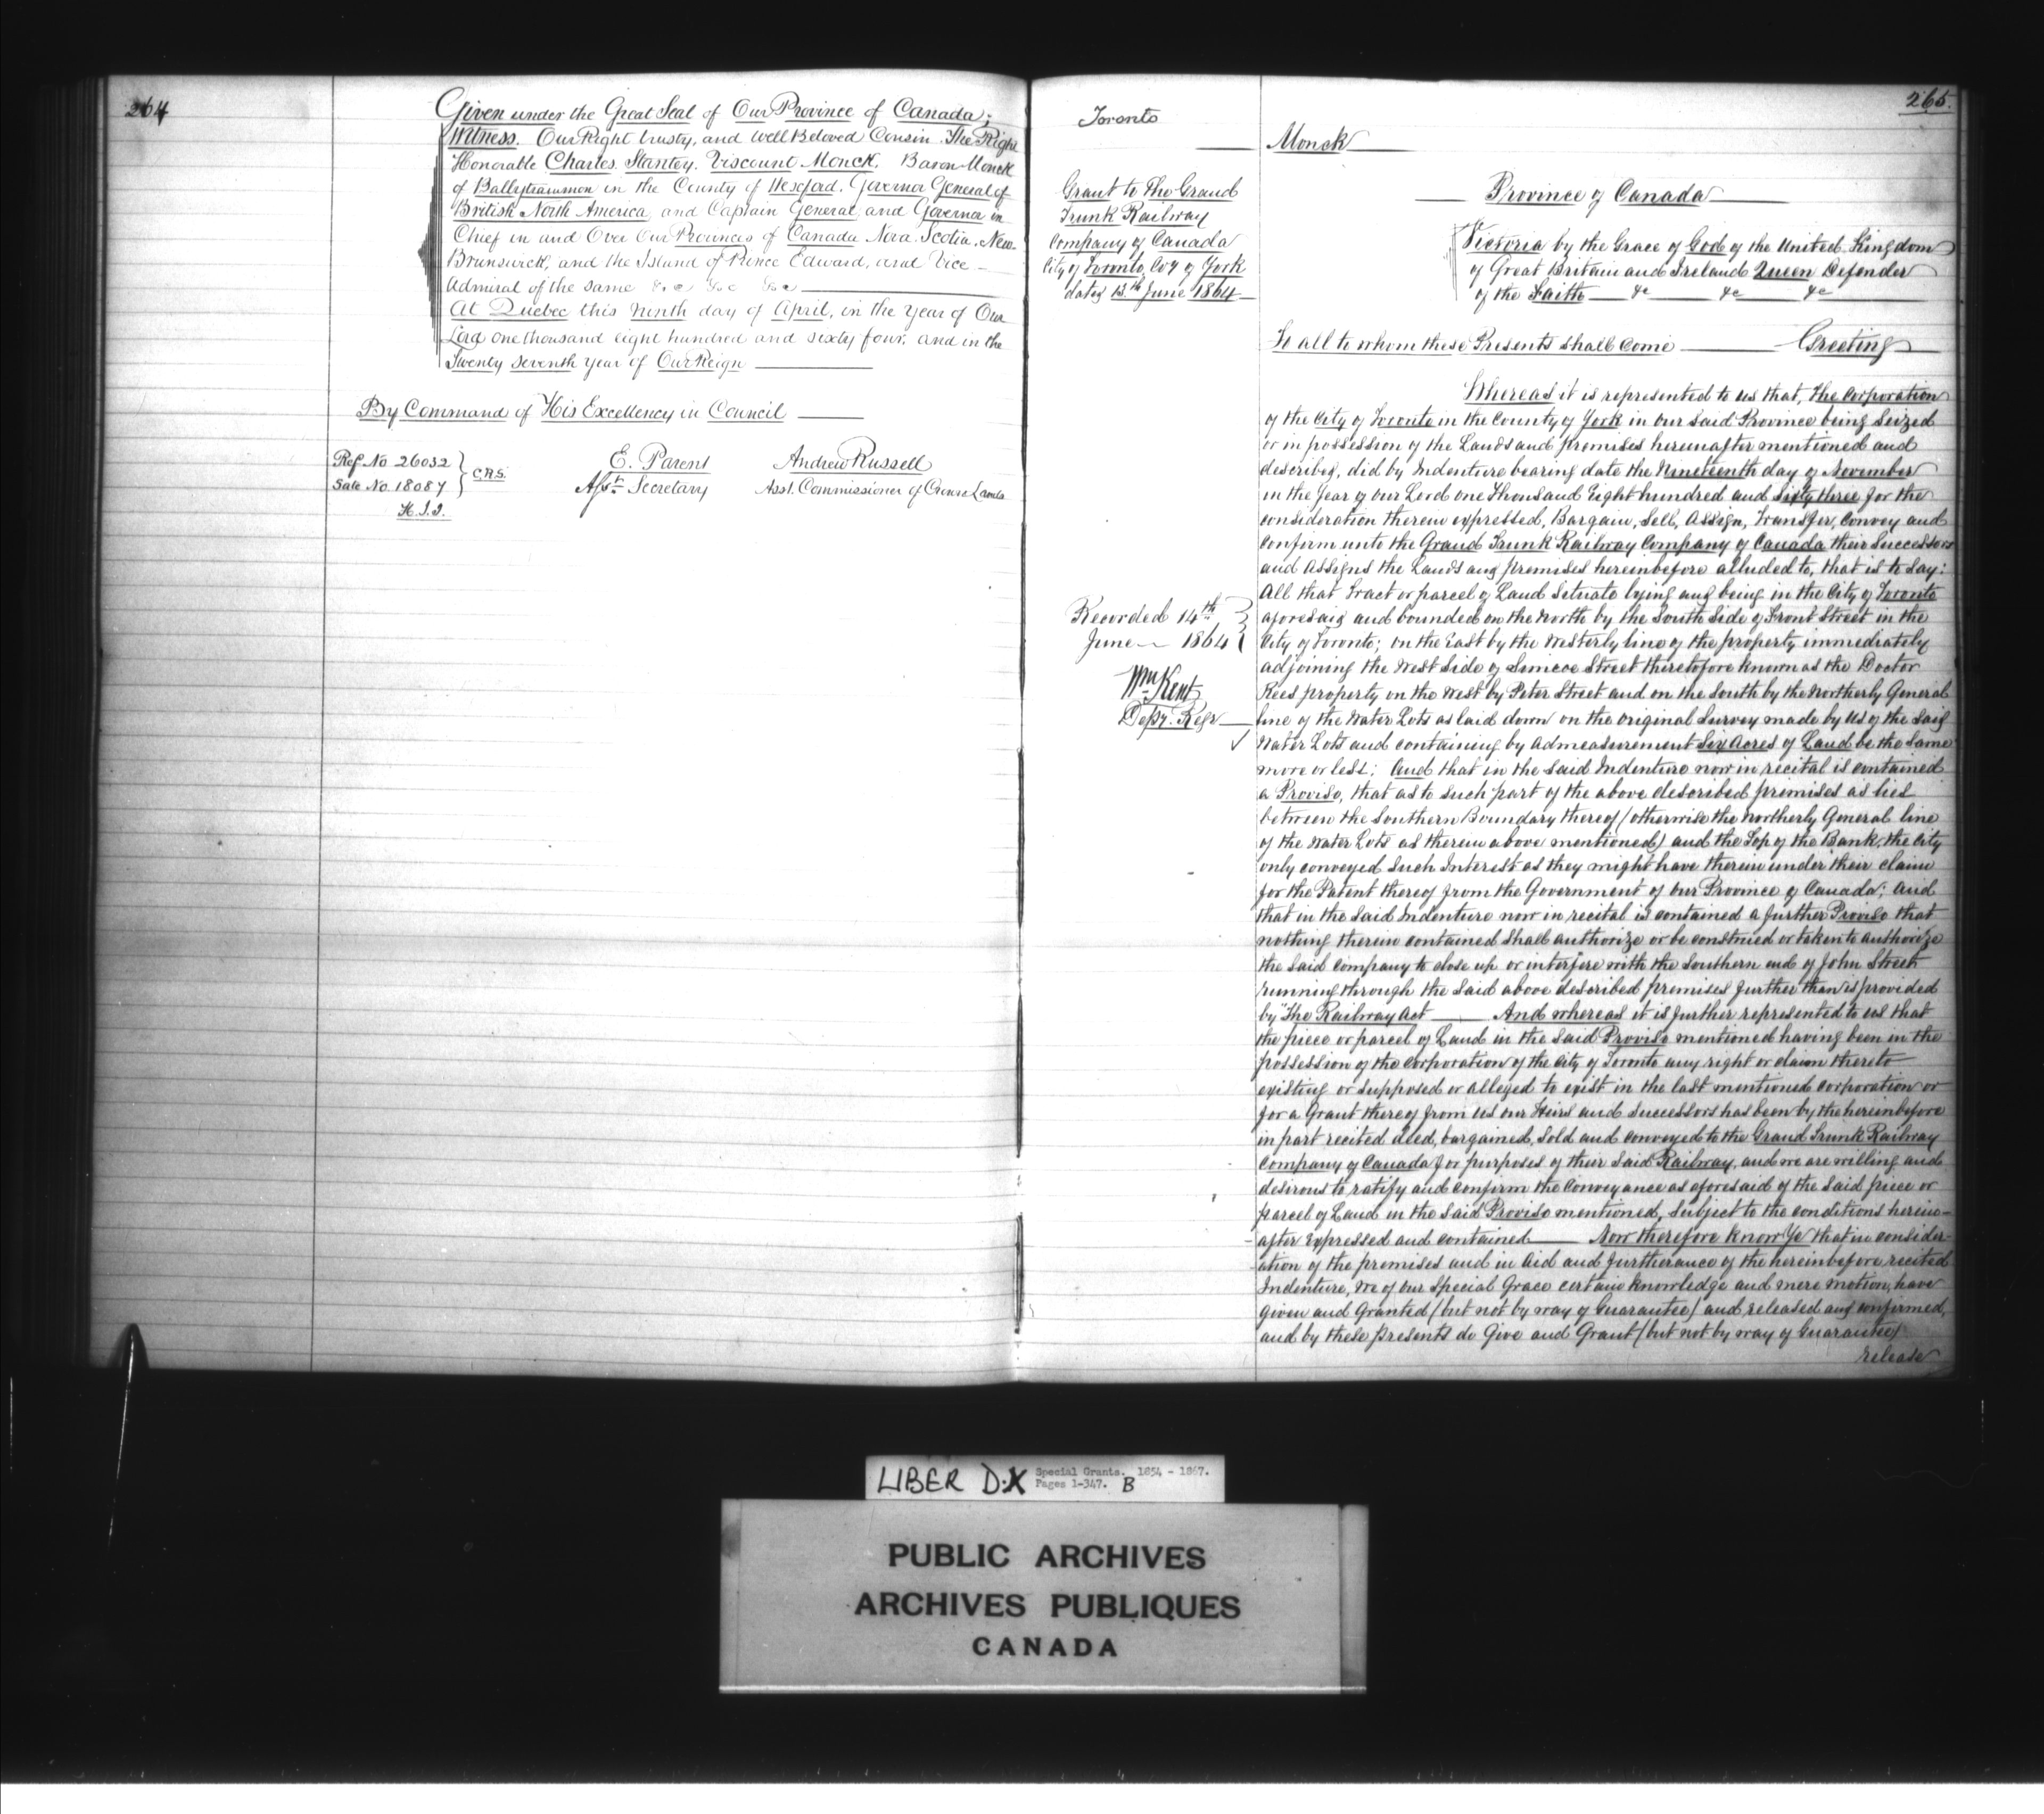 264
Given under the Great Seal of Our Province of Canada;
Witness. Our Right trusty, and Well Beloved Cousin The Right
Honorable Charles Stanley. Viscount Monck. Baron Monck
of Ballytrammon in the County of Wexford. Governor General of
British North America, and Captain General, and Governor in
Chief in and Over Our Provinces of Canada Nova. Scotia. New-
Brunswick, and the Island of Prince Edward, and Vice -
Admiral of the same &c &c &c
At Quebec this Ninth day of April, in the year of Our
Lord one thousand eight hundred and sixty four, and in the
Twenty seventh year of Our Reign
By Command of His Excellency in Council
Ref. No 26032
Sale No. 18087
C.R.S.
E. Parent
Asst. Secretary
Andrew Russell
Asst. Commissioner of Crown Lands
265.
Toronto
Grant to The Grand
Trunk Railway
Company of Canada
City of Toronto Coy of York
dated 13.th June 1864
Recorded 14th
June 1864
Wm Kent
Depy. Regr
Monck
Province of Canada
Victoria by the Grace of God of the United Kingdom
of Great Britain and Ireland Queen Defender
of the Faith &c &c &c
To all to whom these Presents shall Come Greeting
Whereas it is represented to us that, the Corporation
of the City of Toronto in the County of York in our said Province being Seized
or in possession of the Lands and premises hereinafter mentioned and
described, did by Indenture bearing date the Nineteenth day of November
in the Year of our Lord one Thousand Eight hundred and Sixty three for the
consideration therein expressed, Bargain, Sell, Assign, Transfer, Convey and
Confirm unto the Grand Trunk Railway Company of Canada their Successors
and Assigns the Lands and premises hereinbefore alluded to, that is to say:
All that Tract or parcel of Land Situate lying and being in the City of Toronto
aforesaid and bounded on the North by the South Side of Front Street in the
City of Toronto; on the East by the Westerly line of the property immediately
adjoining the West Side of Simcoe Street theretofore known as the Doctor
Rees property on the West by Peter Street and on the South by the Northerly General
line of the Water Lots as laid down on the original Survey made by Us of the said
Water Lots and containing by Admeasurement Six Acres of Land be the same
more or less; And that in the said Indenture now in recital is contained
a Proviso, that as to such part of the above described premises as lies
between the Southern Boundary thereof (otherwise the Northerly General line
of the Water Lots as therein above mentioned) and the Top of the Bank, the City
only conveyed Such Interest as they might have therein under their claim
for the Patent thereof from the Government of our Province of Canada; And
that in the said Indenture now in recital is contained a further Proviso that
nothing therein contained Shall authorize or be construed or taken to authorize
the said Company to close up or interfere with the Southern end of John Street
running through the said above described premises further than is provided
by "The Railway Act And whereas it is further represented to us that
the piece or parcel of Land in the said Proviso mentioned having been in the
possession of the Corporation of the City of Toronto any right or claim thereto
existing or supposed or alleged to exist in the last mentioned corporation or
for a Grant thereof from us our Heirs and Successors has been by the hereinbefore
in part recited deed, bargained, Sold and conveyed to the Grand Trunk Railway
Company of Canada for purposes of their said Railway, and we are willing and
desirous to ratify and confirm the Conveyance as aforesaid of the said piece or
parcel of Land in the said Proviso mentioned, Subject to the conditions herein-
after Expressed and contained Now therefore Know Ye that in consider-
ation of the premises and in Aid and furtherance of the hereinbefore recited
Indenture, We of our Special Grace certain knowledge and mere motion, have
given and Granted (but not by way of Guarantee) and released and confirmed,
and by these presents do Give and Grant (but not by way of Guarantee)
release
LIBER D.X Special Grants. 1854 - 1867.
Pages 1-347. B
PUBLIC ARCHIVES
ARCHIVES PUBLIQUES
CANADA